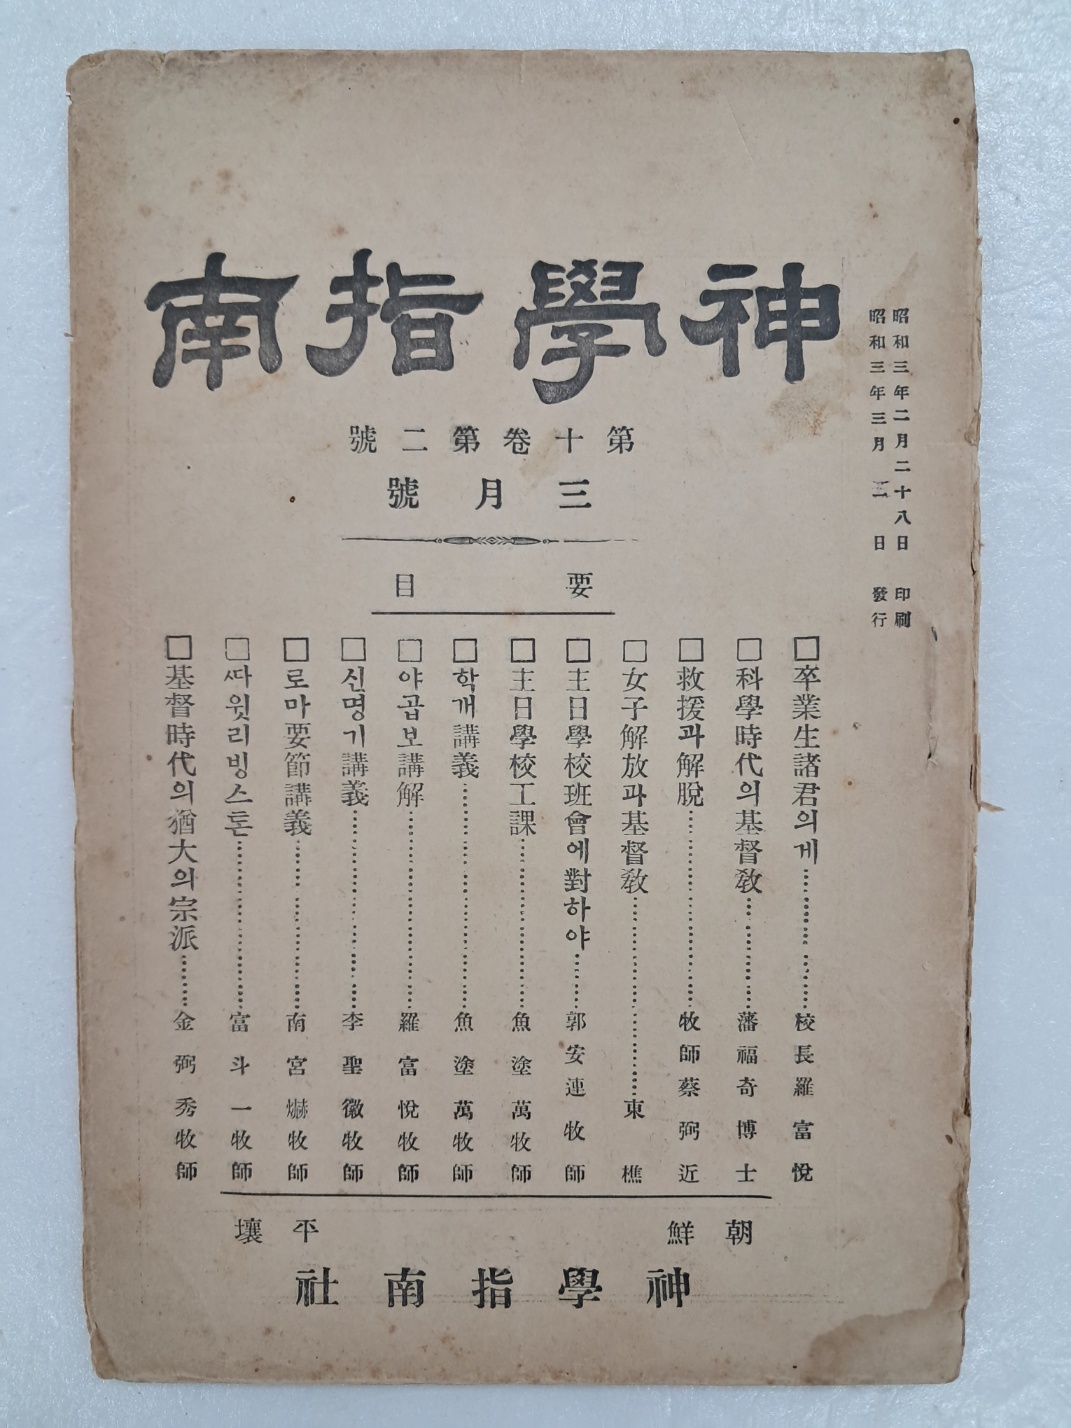 昭和三年二月二十八日 印刷
昭和三年三月二日 發行
神學指南
第十卷第二號
三月號
要目
□卒業生諸君의게…………校長羅富悅
□科學時代의基督敎…………藩福奇博士
□救援과解脫…………牧師蔡弼近
□女子解放과基督敎…………東樵
□主日學校班會에對하야…………郭安連牧師
□主日學校工課…………魚塗萬牧師
□학개講義…………魚塗萬牧師
□야곱보講解…………羅富悅牧師
□신명기講義…………李聖徽牧師
□로마要節講義…………南宮爀牧師
□따윗리빙스톤…………富斗一牧師
□基督時代의猶大의宗派…………金弼秀牧師
朝鮮 平壤
神學指南社